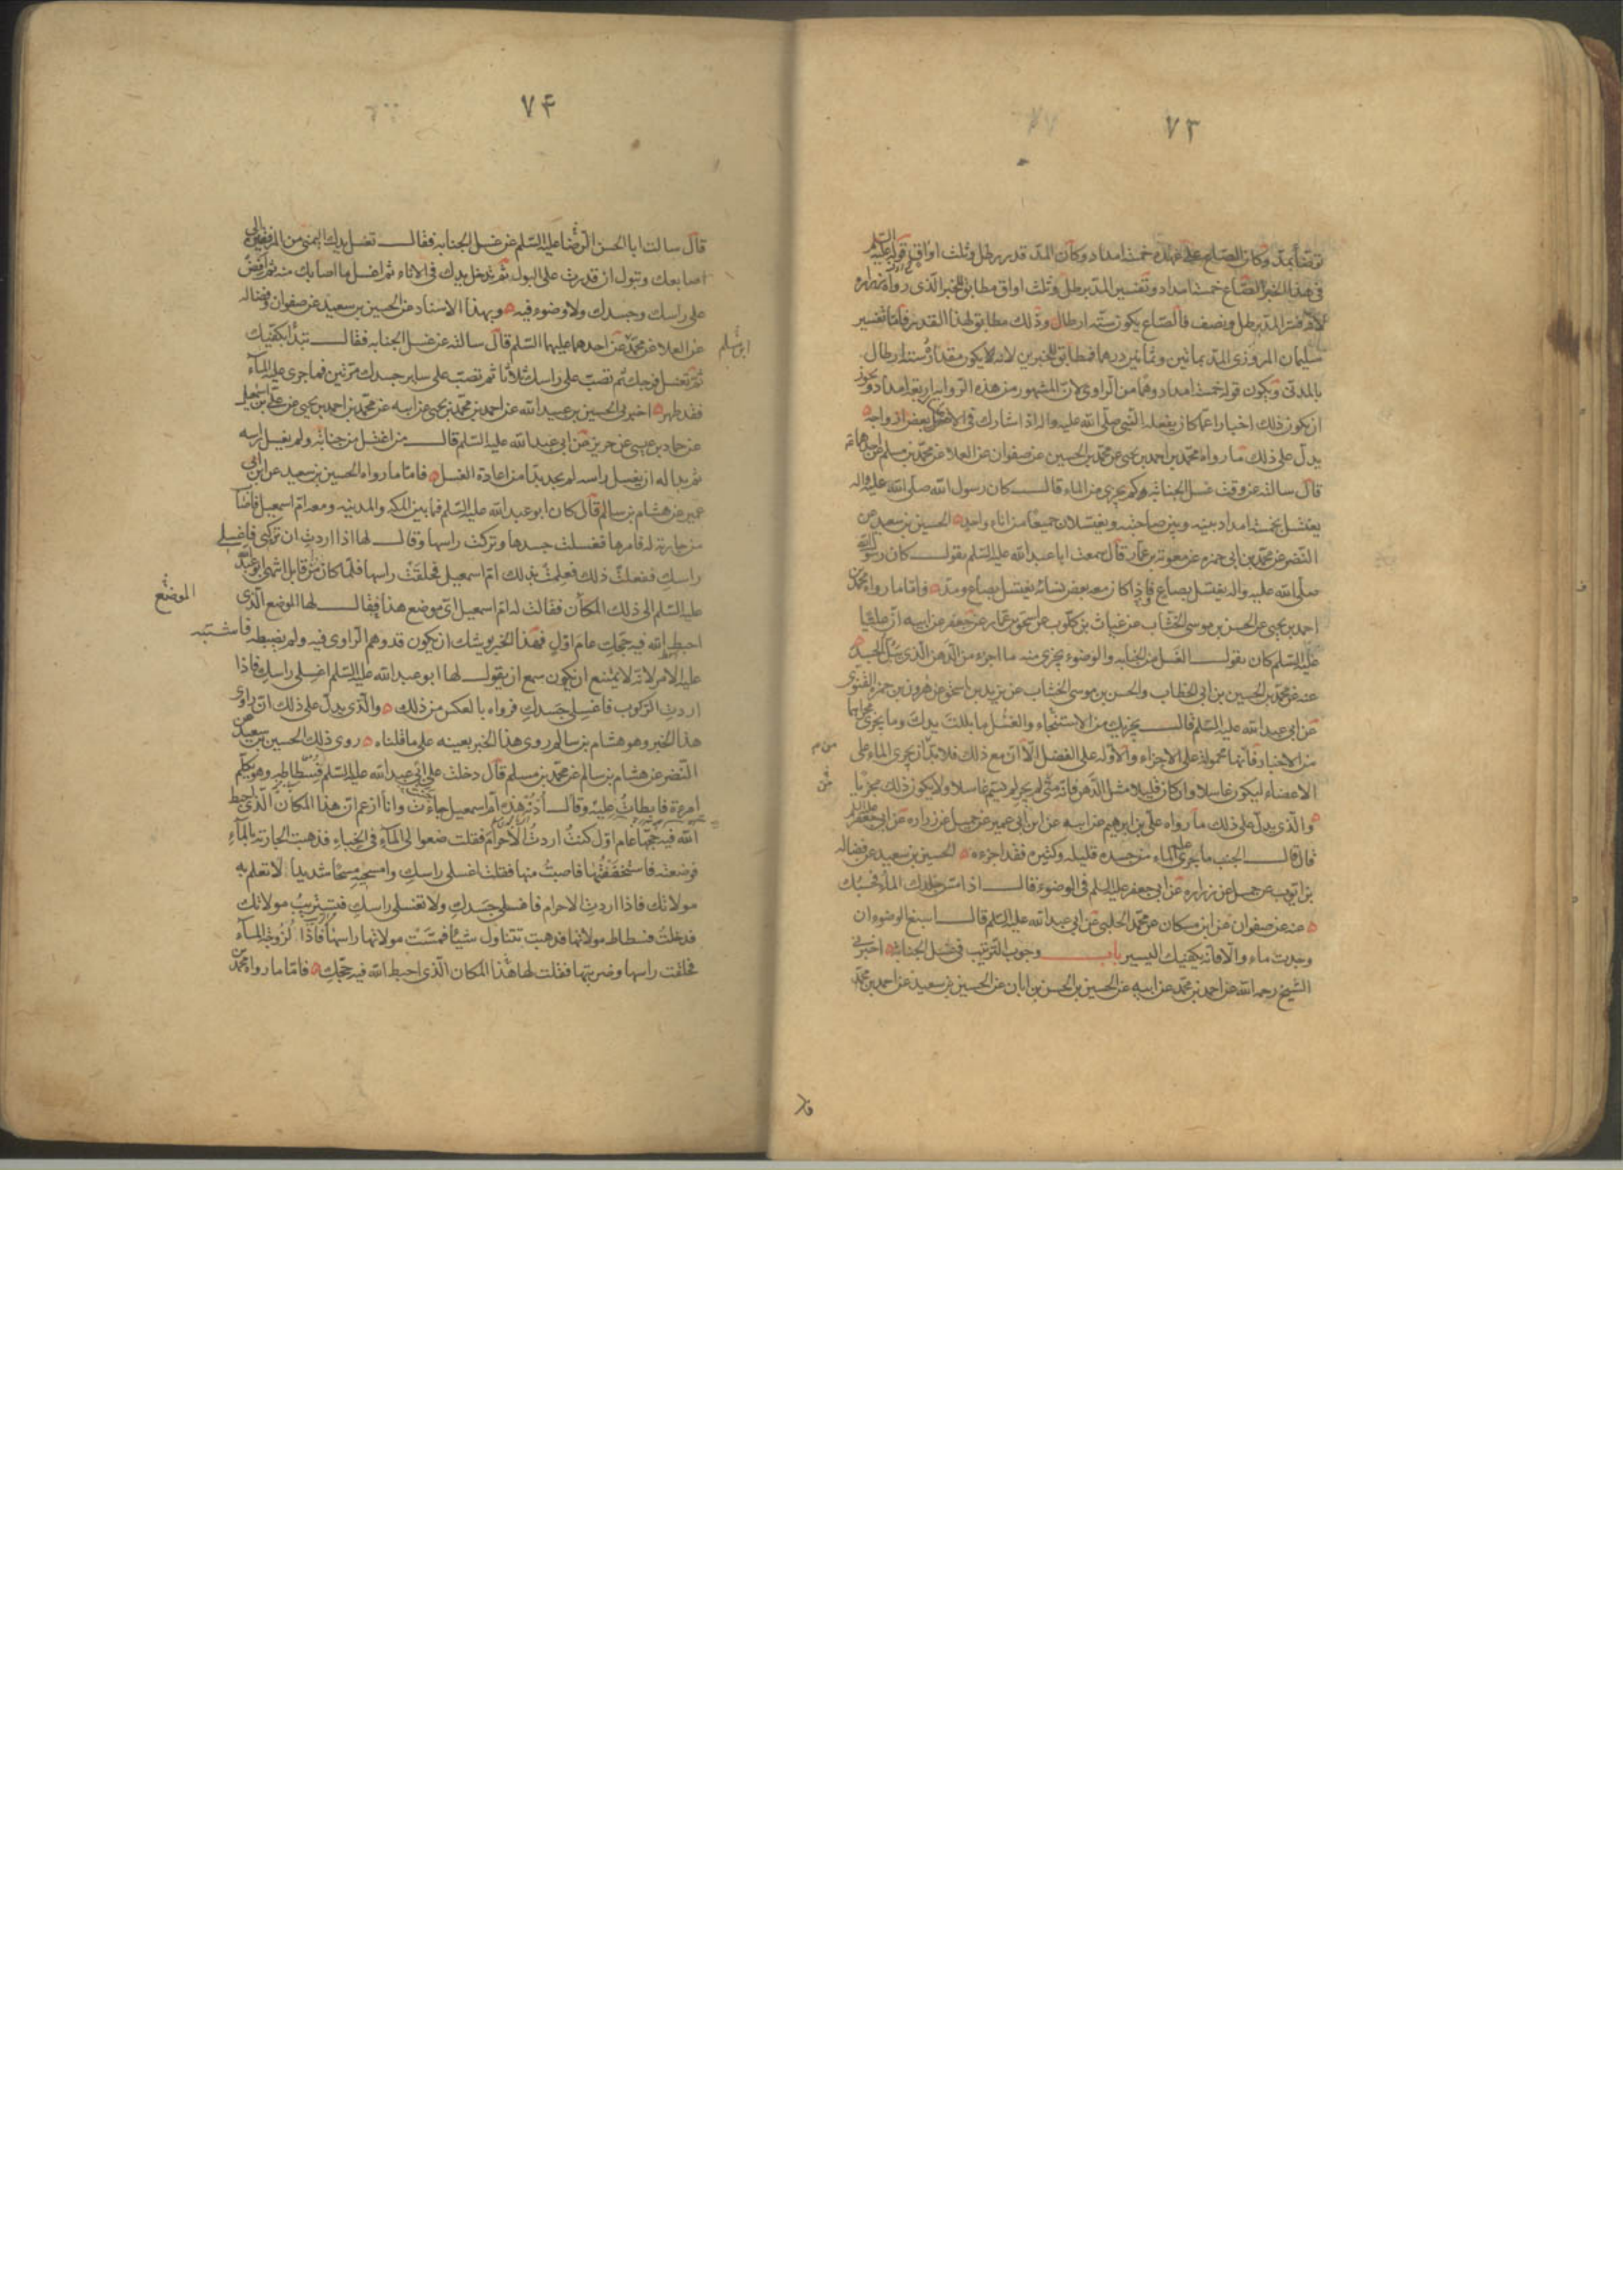 ٧٣
توضأ بمد وكان الصاع على عهده خمسة امداد وكان المد قدر رطل وثلث اواق قوله عليه السلم
في هذا الخبر الصاع خمسة امداد وتفسير المد برطل وثلث اواق مطابق للخبر الذى رواه زراره
لانه فسر المد برطل ونصف فالصاع يكون ستة ارطال وذلك مطابق لهذا القدر فاما تفسير
سليمان المروزى المد بمائتين وثمانين درهما فمطابق للخبرين لانه يكون مقداره ستة ارطال
بالمدنى ويكون قوله خمسة امداد وهما من الراوى لان المشهور من هذه الرواية اربعة امداد ويجوز
ان يكون ذلك اخبارا عما كان يفعله النبى صلى الله عليه واله اذا شارك في الاغتسال بعض ازواجه
يدل على ذلك ما رواه محمد بن احمد بن يحيى عن محمد بن الحسين عن صفوان عن العلا عن محمد بن مسلم عن احدهما ع
قال سالته عن وقت غسل الجنابة وكم يجزى من الماء قال كان رسول الله صلى الله عليه واله
يغتسل بخمسة امداد بينه وبين صاحبته ويغتسلان جميعا من اناء واحد الحسين بن سعيد عن
النضر عن محمد بن ابى حمزه عن معوية بن عمار قال سمعت ابا عبد الله عليه السلم يقول كان رسول الله
صلى الله عليه واله يغتسل بصاع فاذا كان معه بعض نسائه يغتسل بصاع ومد فاما ما رواه محمد بن
احمد بن يحيى عن الحسن بن موسى الخشاب عن غياث بن كلوب عن اسحق بن عمار عن جعفر عن ابيه ان عليا
عليه السلم كان يقول الغسل من الجنابه والوضوء يجزى منه ما اجزء من الدهن الذى يبل الجسد
عنه عن محمد بن الحسين بن ابى الخطاب والحسن بن موسى الخشاب عن يزيد بن اسحق عن هرون بن حمزه الغنوى
عن ابى عبد الله عليه السلم قال يجزيك من الاستنجاء والغسل ما بللت يدك وما يجرى مجراهما
من الاخبار فانها محمولة على الاجزاء والاولة على الفضل الا ان مع ذلك فلا بد ان يجرى الماء على
الاعضاء ليكون غاسلا وان كان قليلا مثل الدهن فانه متى لم يجر لم يسم غاسلا ولا يكون ذلك مجزيا
والذى يدل على ذلك ما رواه على بن ابرهيم عن ابيه عن ابن ابى عمير عن جميل عن زراره عن ابى جعفر عليه السلم
قال قال الجنب ما جرى عليه الماء من جسده قليله وكثيره فقد اجزءه الحسين بن سعيد عن فضاله
بن ايوب عن جميل عن زراره عن ابى جعفر عليه السلم في الوضوء قال اذا مس جلدك الماء فحسبك
عنه عن صفوان عن ابن مسكان عن محمد الحلبى عن ابى عبد الله عليه السلم قال اسبغ الوضوء ان
وجدت ماء والا فانه يكفيك اليسير باب وجوب الترتيب في غسل الجنابة اخبرنى
الشيخ رحمه الله عن احمد بن محمد عن ابيه عن الحسين بن الحسن بن ابان عن الحسين بن سعيد عن احمد بن محمد
٧٤
قال سالت ابا الحسن الرضا عليه السلم عن غسل الجنابه فقال تغسل يدك اليمنى من المرفقين الى
اصابعك وتبول ان قدرت على البول ثم تدخل يدك في الاناء ثم اغسل ما اصابك منه ثم افض
على راسك وجسدك ولا وضوء فيه وبهذا الاسناد عن الحسين بن سعيد عن صفوان وفضاله
عن العلا عن محمد عن احدهما عليهما السلم قال سالته عن غسل الجنابه فقال تبدأ بكفيك
بن مسلم
ثم تغسل فرجك ثم تصب على راسك ثلاثا ثم تصب على ساير جسدك مرتين فما جرى عليه الماء
فقد طهر اخبرنى الحسين بن عبيد الله عن احمد بن محمد بن يحيى عن ابيه عن محمد بن احمد بن يحيى عن على بن اسمعيل
عن حماد بن عيسى عن حريز عن ابى عبد الله عليه السلم قال من اغتسل من جنابة ولم يغسل راسه
ثم بدا له ان يغسل راسه لم يجد بدا من اعادة الغسل فاما ما رواه الحسين بن سعيد عن ابن ابى
عمير عن هشام بن سالم قال كان ابو عبد الله عليه السلم فيما بين المكه والمدينه ومعه ام اسمعيل فاصاب
من جارية له فامرها فغسلت جسدها وتركت راسها وقال لها اذا اردت ان تركبى فاغسلى
راسك ففعلت ذلك فعلمت بذلك ام اسمعيل فحلقت راسها فلما كان من قابل انتهى ابو عبد الله
عليه السلم الى ذلك المكان فقالت له ام اسمعيل اى موضع هذا فقال لها الموضع الذى
الموضع
احبط الله فيه حجك عام اول فهذا الخبر يوشك ان يكون قد وهم الراوى فيه ولم يضبطه فاشتبه
عليه الامر لانه لا يمتنع ان يكون سمع ان يقول لها ابو عبد الله عليه السلم اغسلى راسك فاذا
اردت الركوب فاغسلى جسدك فرواه بالعكس من ذلك والذى يدل على ذلك ان راوى
هذا الخبر وهو هشام بن سالم روى هذا الخبر بعينه على ما قلناه روى ذلك الحسين بن سعيد عن
النضر عن هشام بن سالم عن محمد بن مسلم قال دخلت على ابى عبد الله عليه السلم فسطاطه وهو يكلم
امرءة فابطات عليه وقال ادنه هذه ام اسمعيل جاءت وانا ازعم ان هذا المكان الذى احبط
الله فيه حجها عام اول كنت اردت الاحرام فقلت ضعوا لى الماء في الخباء فذهبت الجارية بالماء
فوضعته فاستخففتها فاصبت منها فقلت اغسلى راسك وامسحيه مسحا شديدا لا تعلم به
مولاتك فاذا اردت الاحرام فاغسلى جسدك ولا تغسلى راسك فتستريب مولاتك
فدخلت فسطاط مولاتها فذهبت تتناول شيئا فمست مولاتها راسها فاذا لزوجة الماء
فحلقت راسها وضربتها فقلت لها هذا المكان الذى احبط الله فيه حجك فاما ما رواه محمد بن